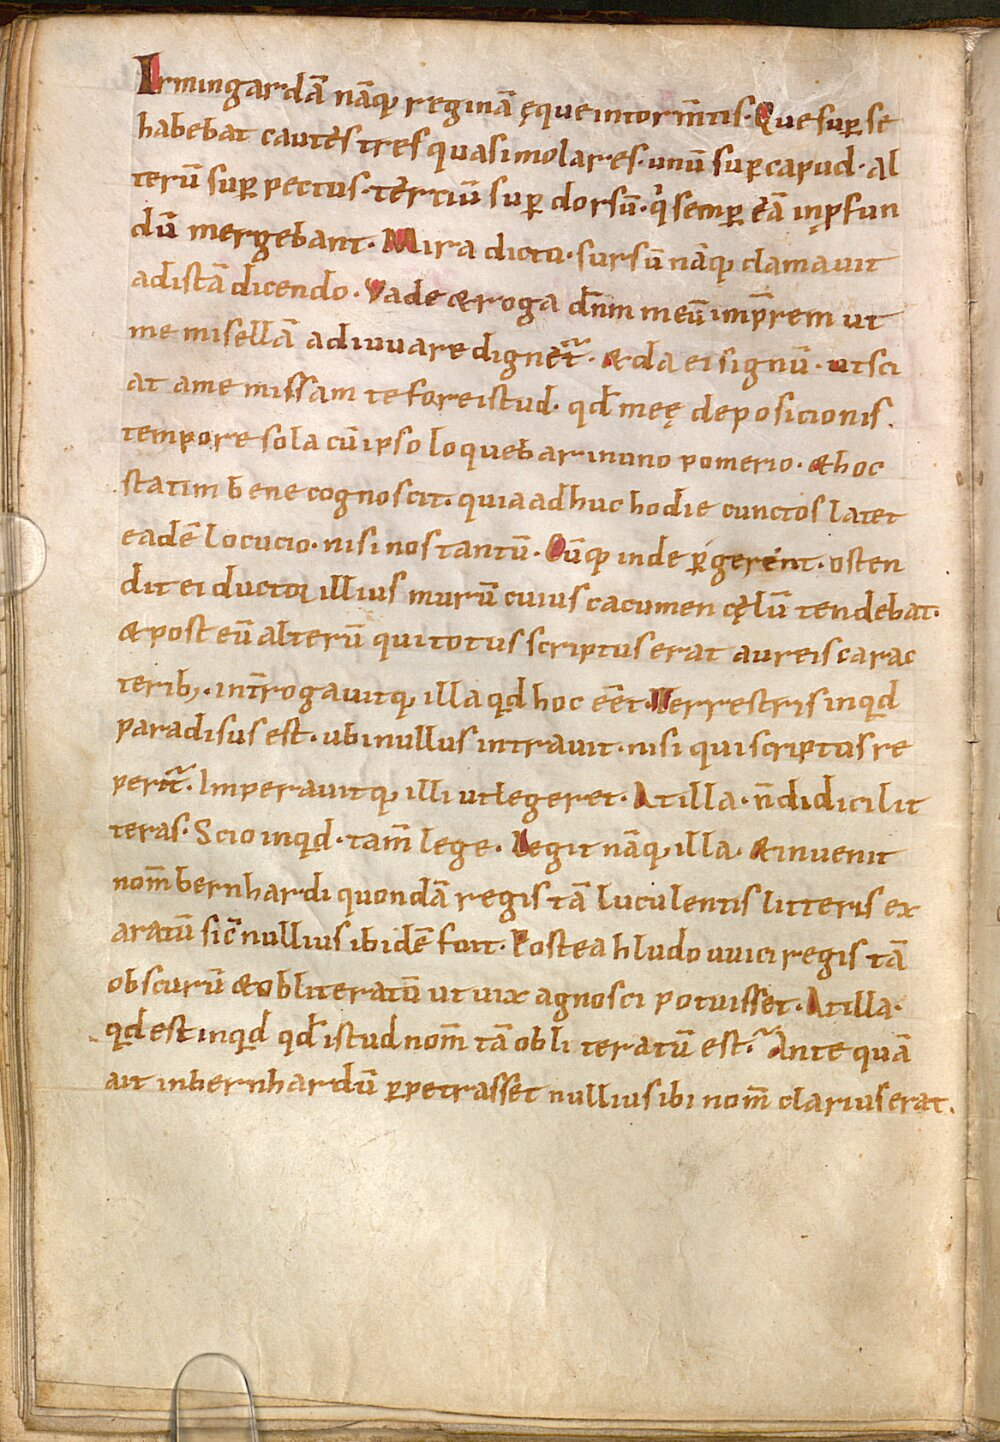 Irmingardā nāq; reginā ęque intorm̄tis· Que sup̱ se
habebat cautes tres quasi molares· unū sup̱ capud· al
terū sup̱ pectus· tertiū sup̱ dorsū· q̇ semp̱ eā inp̱fun
dū mergebant· Mira dictu· sursū nāq; clamauit
ad istā dicendo· Vade & roga dn̄m meū imp̄rem ut
me misellā adiuuare dignet᷑· & da ei signū· ut sci
at a me missam te fore istud· qđ meę deposicionis·
tempore sola cū ipso loquebar in uno pomerio· & hoc
statim bene cognoscit· quia adhuc hodie cunctos latet
eadē locucio· nisi nos tantū· Cūq; inde p̱gerent· osten
dit ei ductor illius murū cuius cacumen cęlū tendebat·
& post eū alterū qui totus scriptus erat aureis carac
terib;· int̄rogauitq; illa qid hoc eēt· Terrestris inqid
paradisus est· ubi nullus intrauit· nisi qui scriptus re
perit᷑· Imperauitq; illi ut legeret· At illa· n̄ didici lit
teras· Scio inqid· tam̄ lege· Legit nāq; illa· & inuenit
nom̄ bernhardi quondā regis tā luculentis litteris ex
aratū sic̄ nullius ibidē fuit· Postea hludouuici regis tā
obscurū & obliteratū ut uix agnosci potuisset· At illa·
qid est inqid qđ istud nom̄ tā obliteratū est? Ante quā
ait in bernhardū p̱petrasset nullius ibi nom̄ clarius erat.